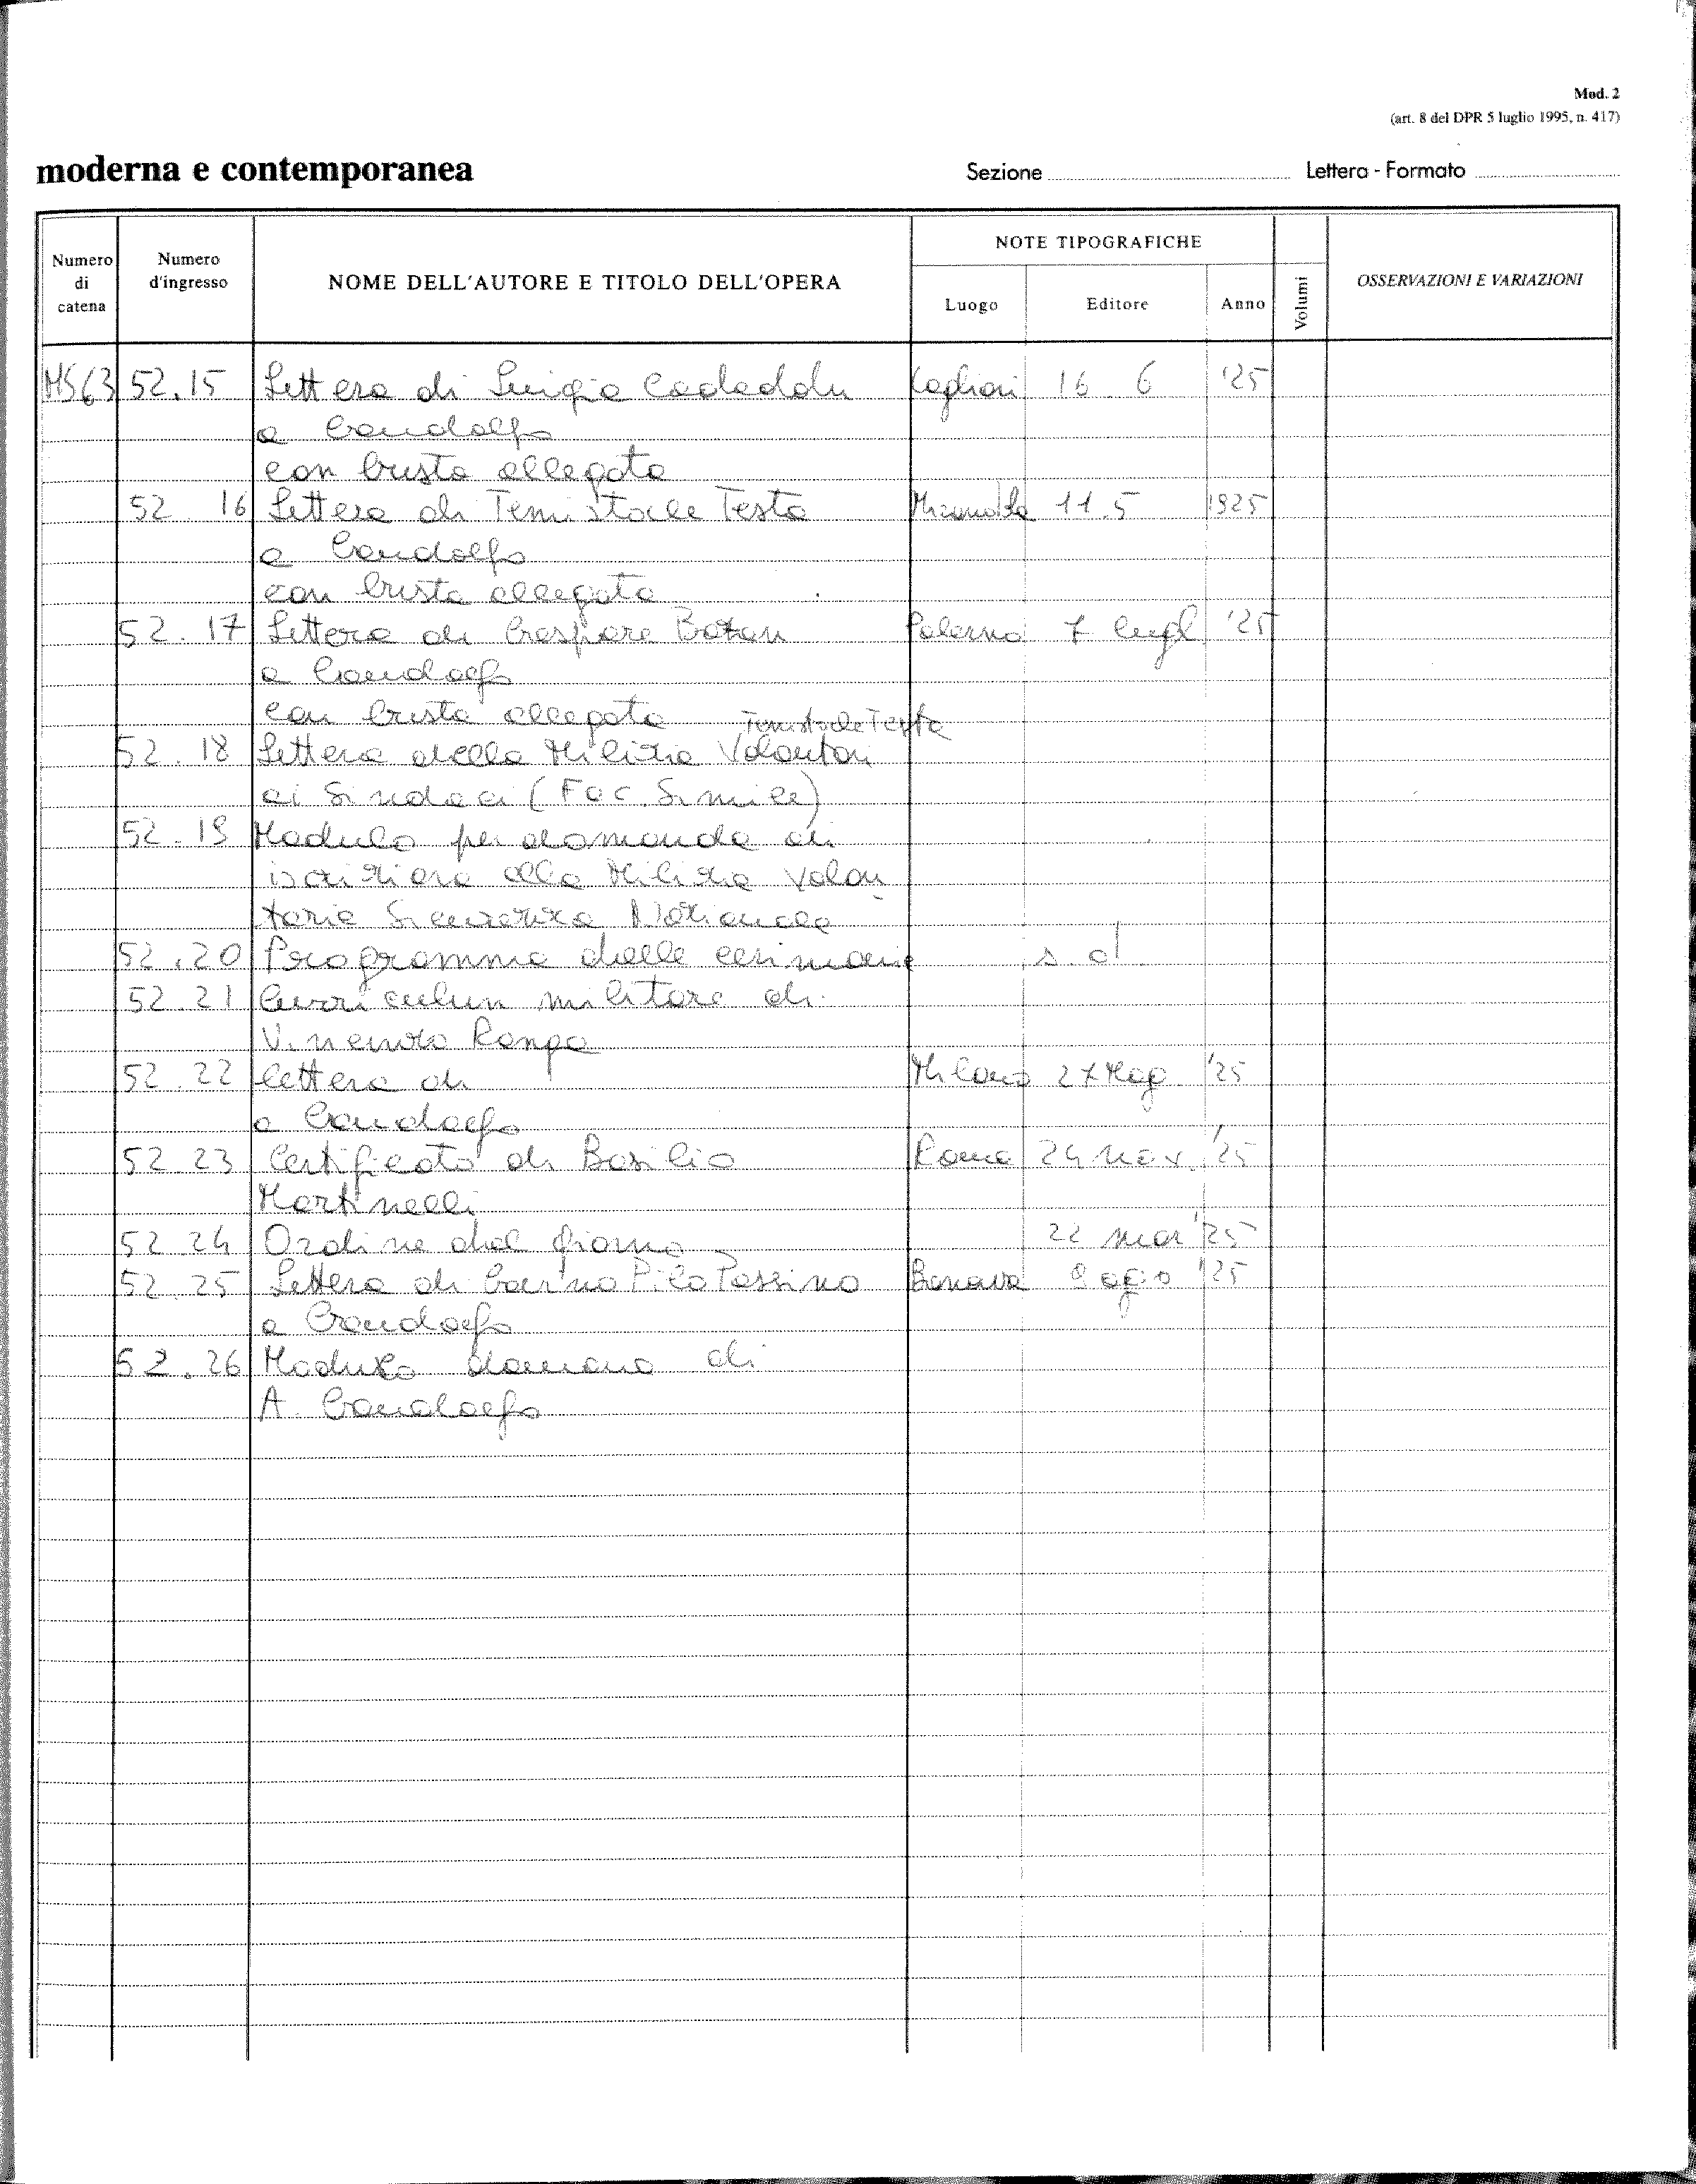 Mod. 2
(art. 8 del DPR 5 luglio 1995, n. 417)
moderna e contemporanea
Sezione
Lettera - Formato
Numero di catena
Numero d'ingresso
NOME DELL'AUTORE E TITOLO DELL'OPERA
NOTE TIPOGRAFICHE
Luogo
Editore
Anno
Volumi
OSSERVAZIONI E VARIAZIONI
MS63 52.15 Lettera di Luigia Cadeddu Cagliari 16 6 '25
a Gandolfo
con busta allegata
52 16 Lettera di Temistocle Testa Mirandola 11.5 1925
a Gandolfo
con busta allegata
52.17 Lettera di Gaspare Palermo 7 lugl '25
a Gandolfo
con busta allegata Temistocle Testa
52.18 Lettera della Milizia Volontari
ai Sindaci (Fac. Simile)
52.19 Modulo per domanda di
iscrizione alla Milizia Volon
taria Sicurezza Nazionale
52.20 Programma delle cerimonie s.d
52.21 Curriculun militare di
Vincenzo Ronga
52.22 lettera di Milano 27 Mag. '25
a Gandolfo
52 23 Certificato di Basilio Roma 24 nov. '25
Martinelli
52 24 Ordine del giorno 22 mar '25
52.25 Lettera di Pilo '25
a Gandolfo
52.26 Modulo di
A. Gandolfo